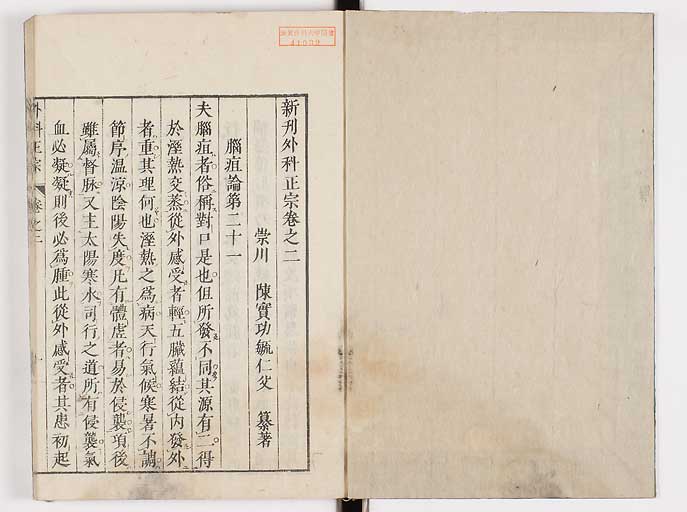 新刋外科正宗卷之二
崇川 陳實功毓仁父 纂著
腦疽論第二十一
夫腦疽者俗稱對口是也但所發不同其源有二得
於溼熱交蒸從外感受者輕五臟蘊結從內發外
者重其理何也溼熱之爲病天行氣候寒暑不調
節序溫涼陰陽失度凡有體虛者易於侵襲項後
雖屬督脉又主太陽寒水司行之道所有侵襲氣
血必凝凝則後必爲腫此從外感受者其患初起
外科正宗 卷之二 一
41039